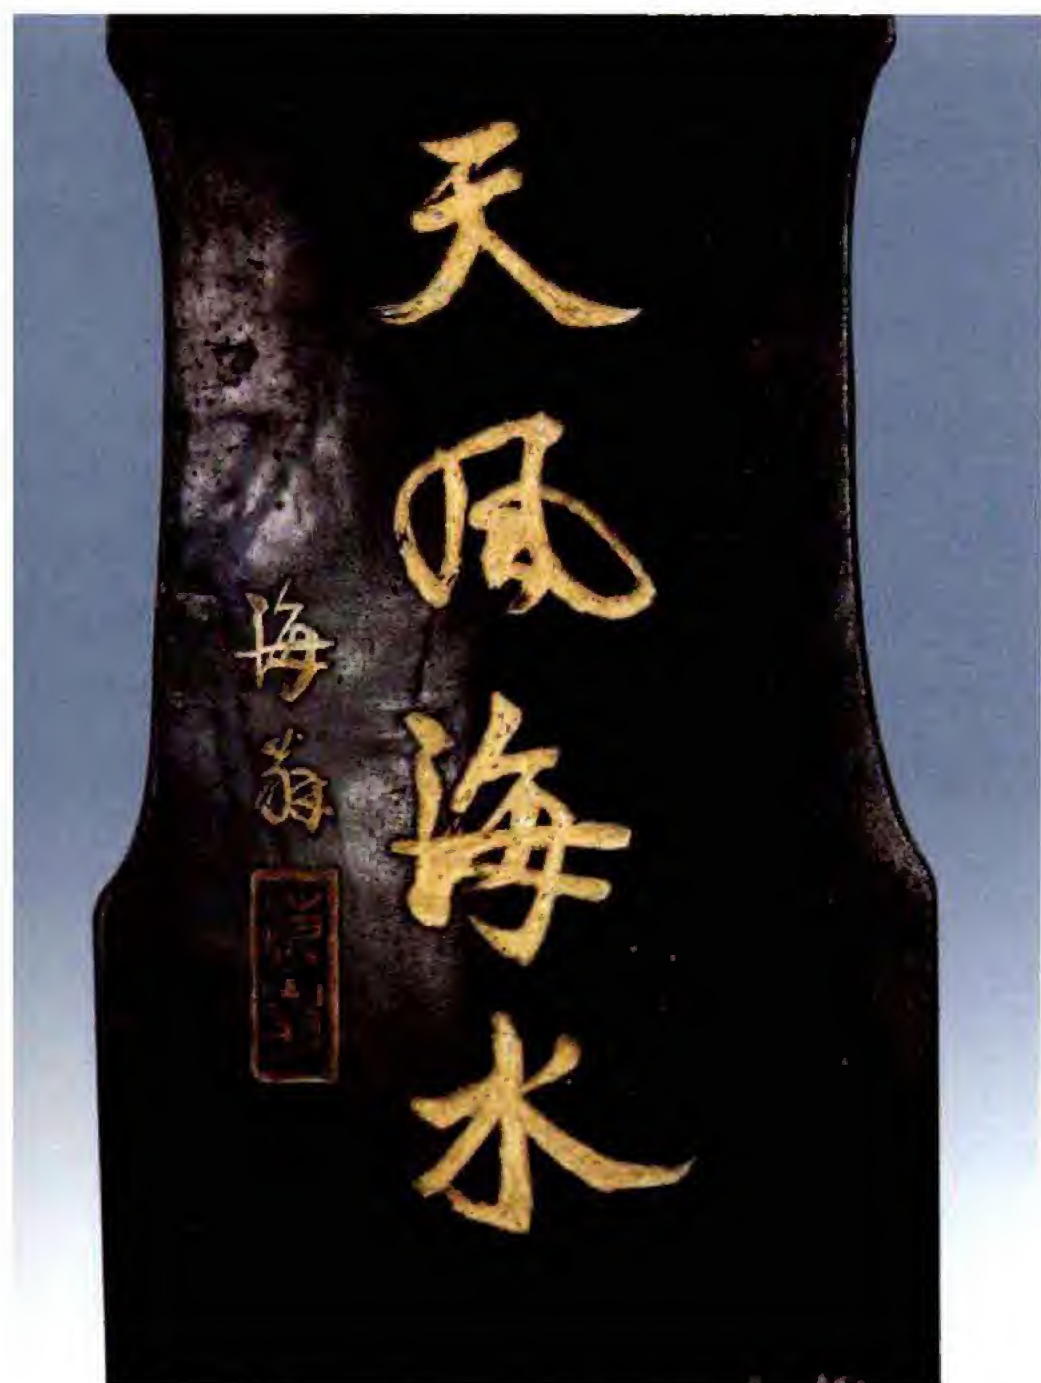 天风海水
海翁